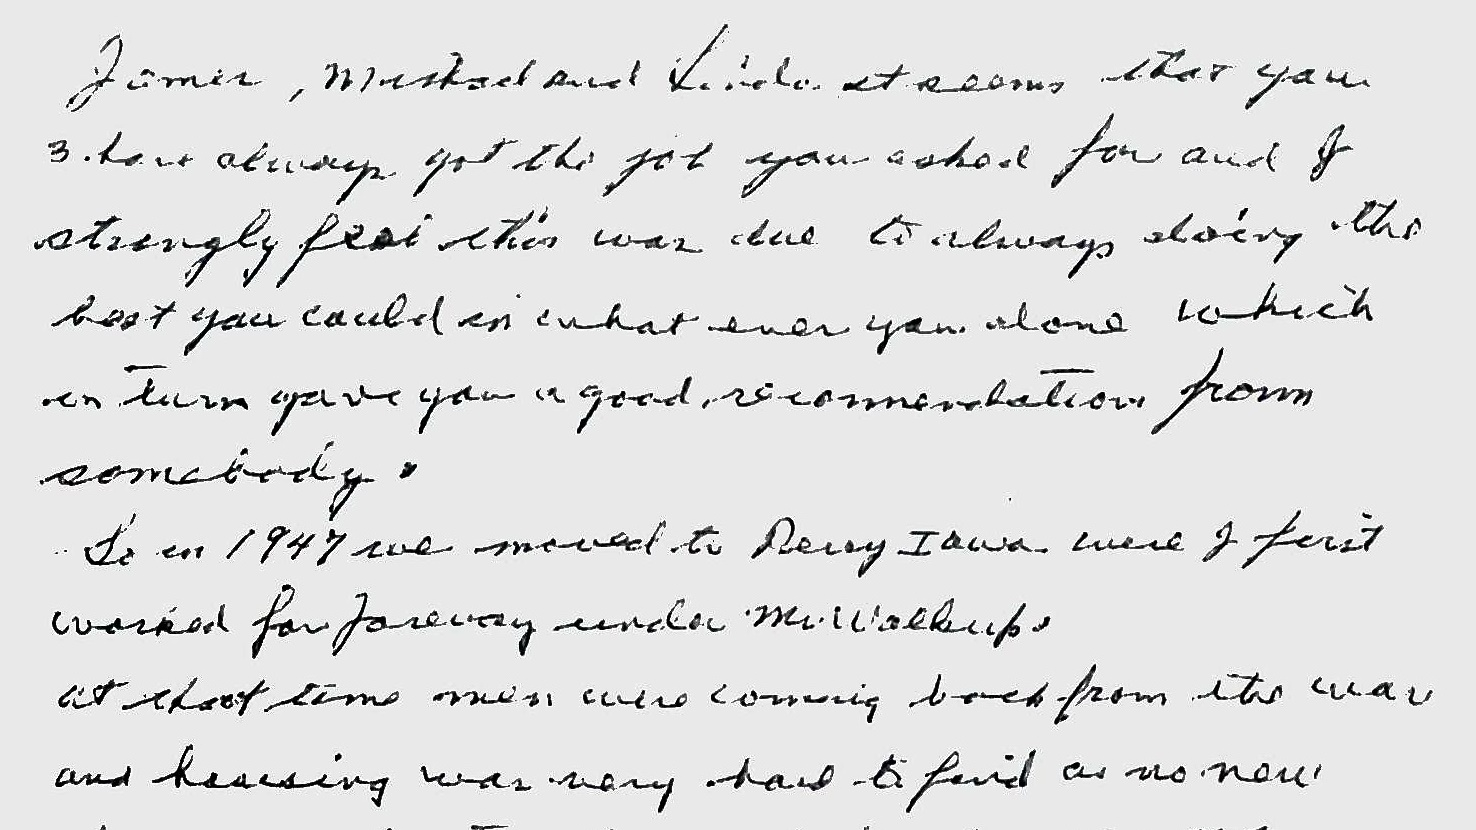 James, Micheal and Linda it seems that you
3 have always got the job you asked for and I
strongly feel this was due to always doing the
best you could in what ever you done which
in turn gave you a good recommendation from
somebody.
So in 1947 we moved to Perry Iowa were I first
worked for under Mr. Walkup.
at that time men were coming back from the war
and housing was very hard to find as no new